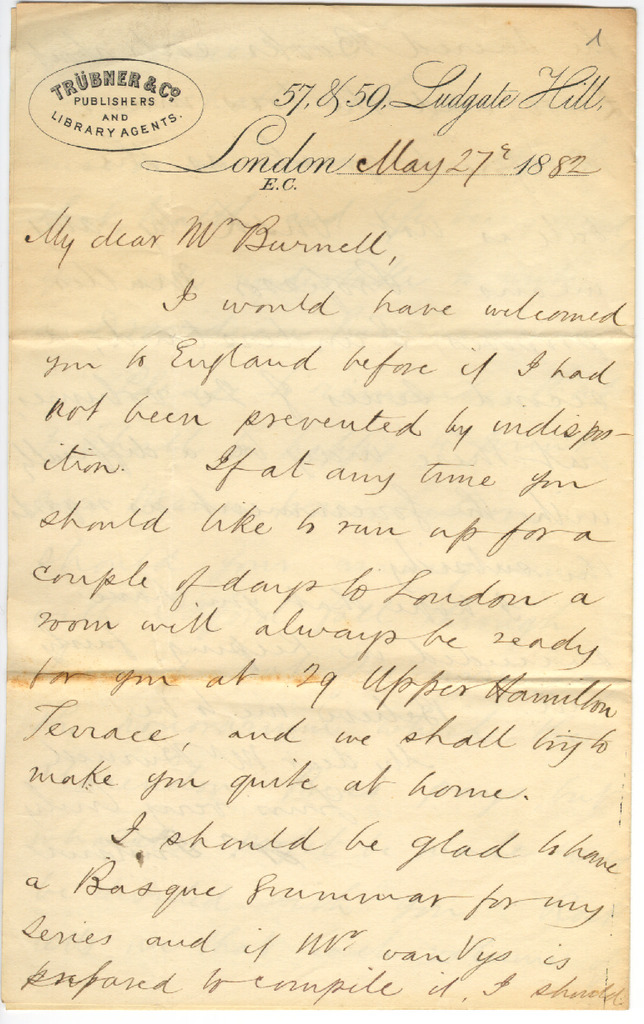 1
TRÜBNER & Co.
PUBLISHERS
AND
LIBRARY AGENTS.
57, & 59, Ludgate Hill,
London May 27th 1882
E.C.
My dear Mr Burnell,
I would have welcomed
you to England before if I had
not been prevented by indispos-
ition. If at any time you
should like to run up for a
couple of days to London a
room will always be ready
for you at 29 Upper Hamilton
Terrace, and we shall try to
make you quite at home.
I should be glad to have
a Basque Grammar for my
series and if Mr van Eys is
prepared to compile it, I should